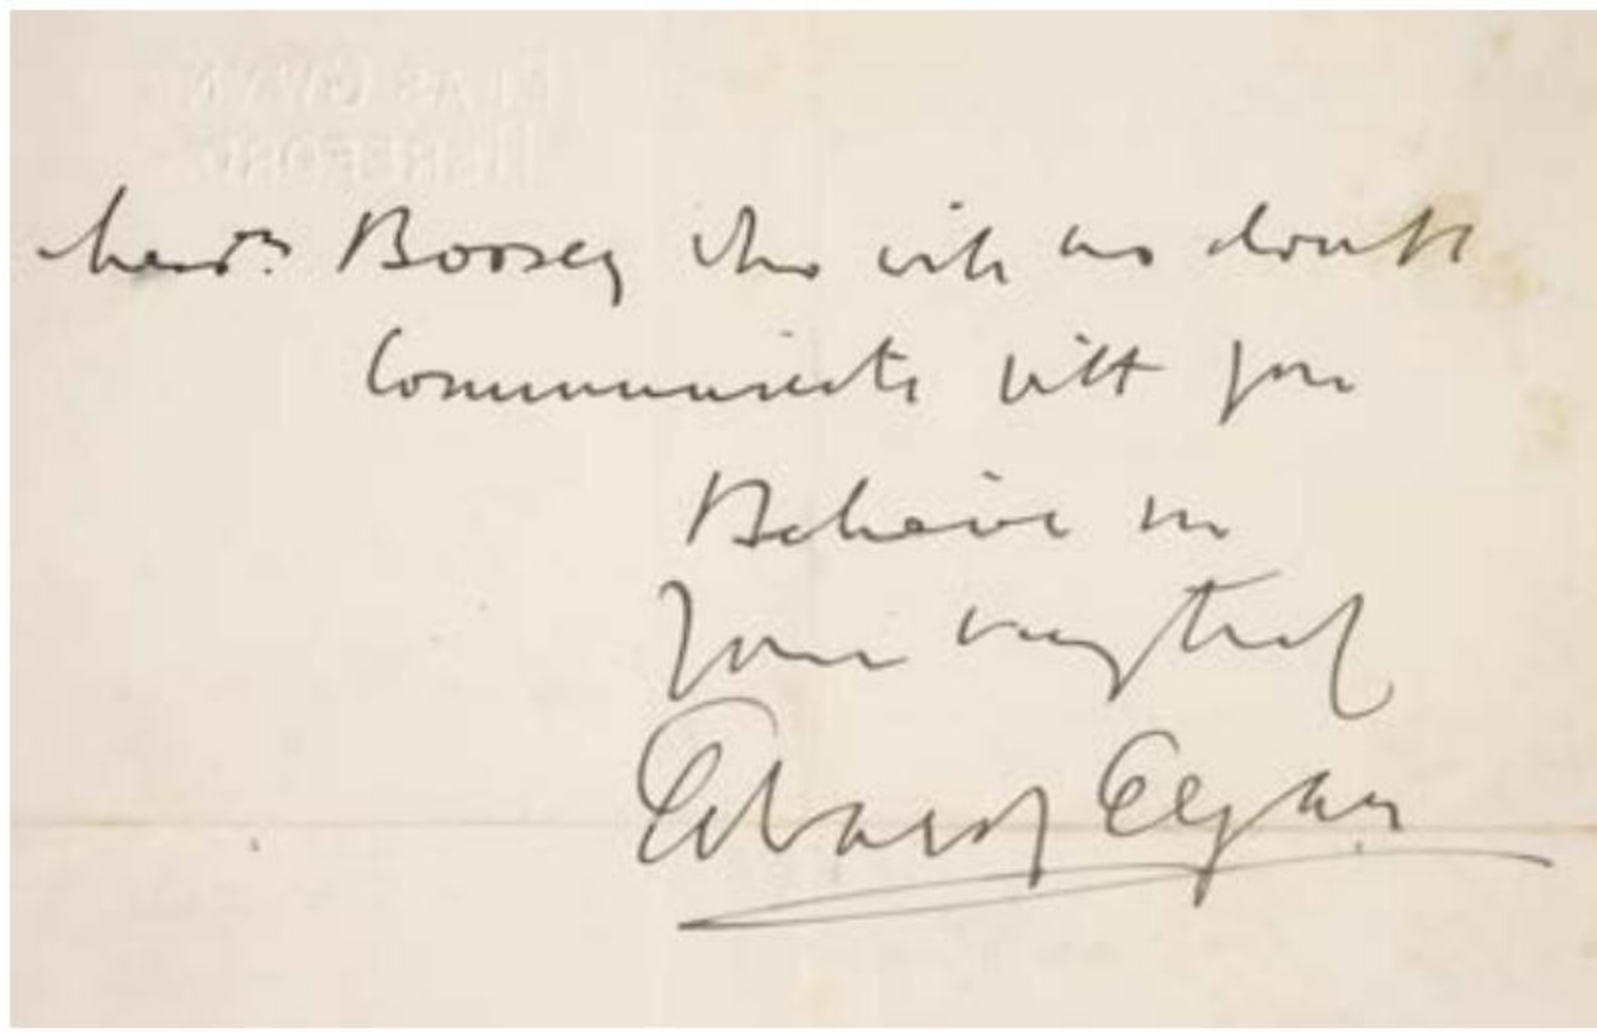 PLAS GWYN
HEREFORD
Messrs. Boosey who will no doubt
communicate with you
Believe me
Yours very truly
Edward Elgar